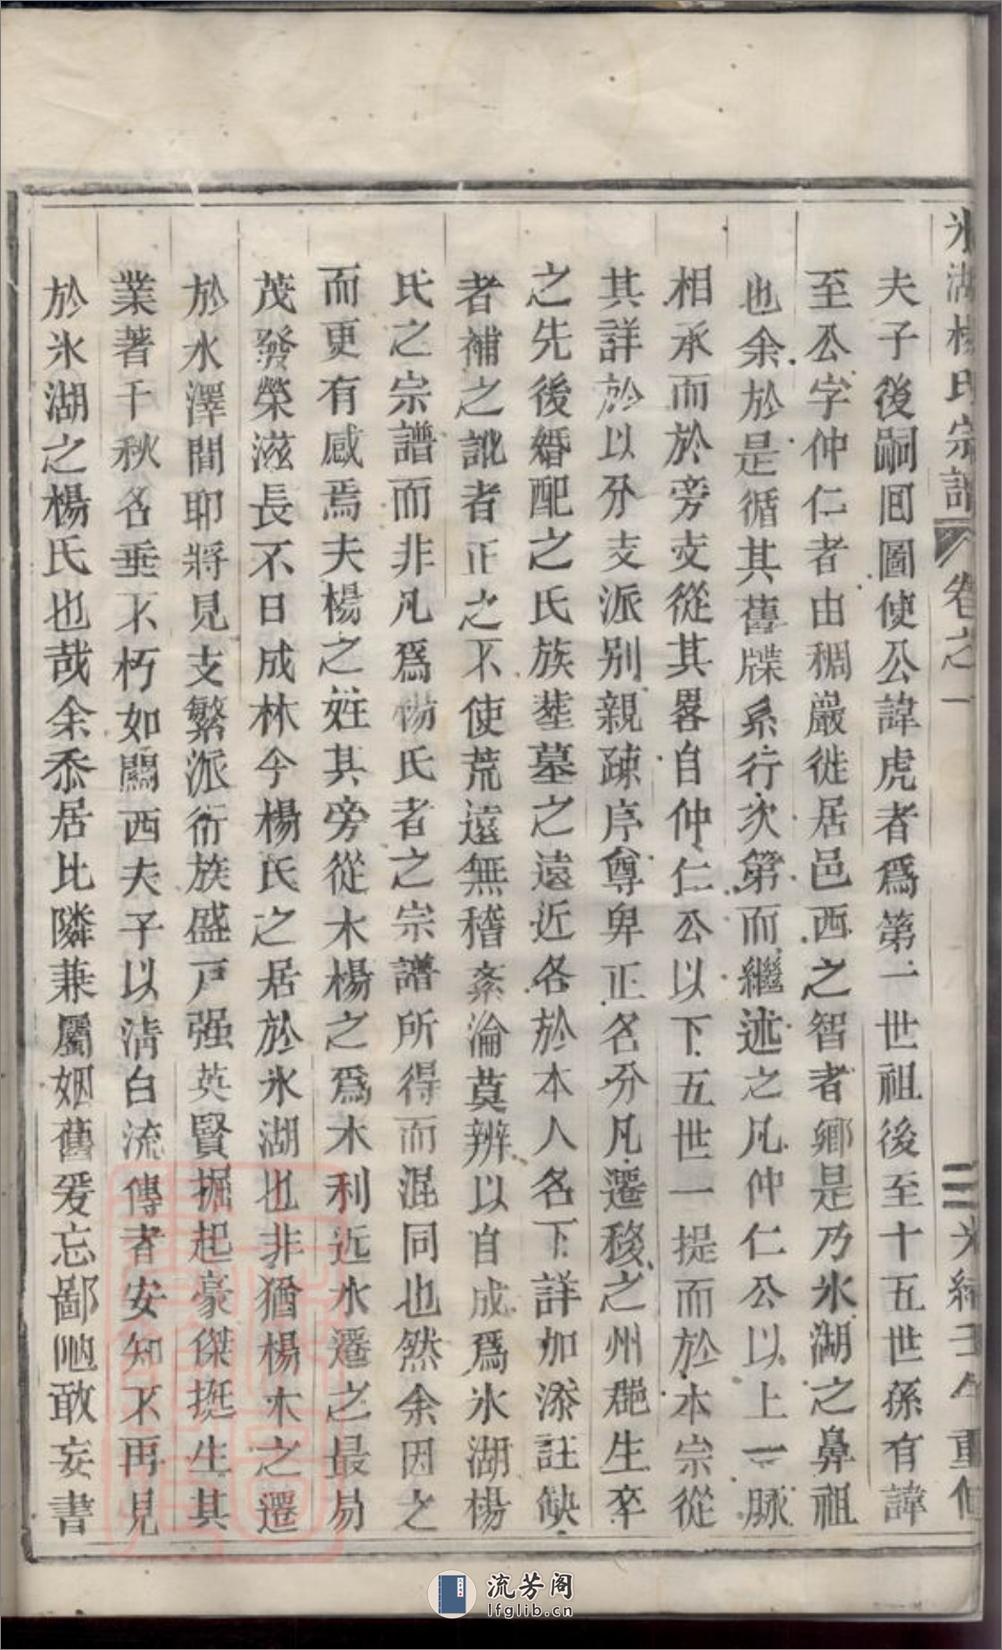 氷湖楊氏宗譜 卷之一 二 光緒壬午重修
夫子後嗣囘圖使公諱虎者爲第一世祖後至十五世孫有諱
至公字仲仁者由稠巖徙居邑西之智者鄉是乃氷湖之鼻祖
也余於是循其舊牒系行次第而繼述之凡仲仁公以上一脉
相承而於旁支從其畧自仲仁公以下五世一提而於本宗從
其詳於以分支派别親疎序尊卑正名分凡遷移之州郡生卒
之先後婚配之氏族塟墓之遠近各於本人名下詳加添註缺
者補之訛者正之不使荒遠無稽紊淪莫辨以自成爲氷湖楊
氏之宗譜而非凡爲楊氏者之宗譜所得而混同也然余因之
而更有感焉夫楊之姓其旁從木楊之爲木利近水遷之最易
茂發榮滋長不日成林今楊氏之居於氷湖也非猶楊木之遷
於水澤間耶將見支繁派衍族盛戸强英賢掘起豪傑挺生其
業著千秋名垂不朽如關西夫子以淸白流傳者安知不再見
於氷湖之楊氏也哉余忝居比隣兼屬姻舊爰忘鄙陋敢妄書
流芳阁
lfglib.cn